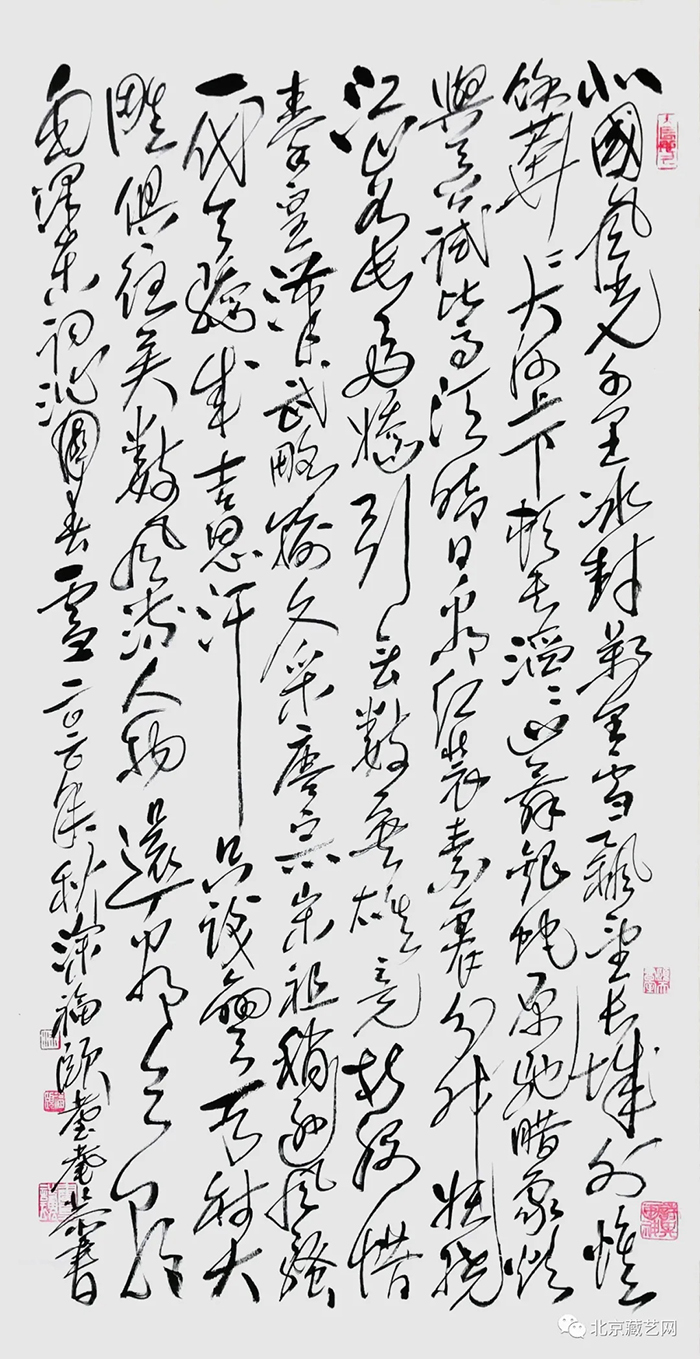 北國風光千里冰封萬里雪飄望長城内外惟
餘莽〻大河上下頓失滔〻山舞銀蛇原馳腊象欲
與天公試比高須晴日看红裝素裹分外妖嬈
江山如此多嬌引無數英雄竞折腰惜
秦皇漢武略輸文采唐宗宋祖稍遜風騷
一代天驕成吉思汗只識彎弓射大
雕俱往矣數风流人物還看今朝
毛澤东词沁園春雪二〇二〇年秋深福頤堂書
北京藏艺网